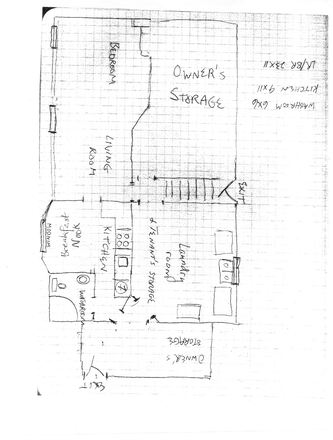 LR/BR 23X11
KITCHEN 9X11
WASHROOM 6X6
BEDROOM
OWNER'S
STORAGE
LIVING
ROOM
EXIT
WINDOW
Breakfast
Nook
KITCHEN
Laundry
room
& TENANT'S STORAGE
WASHROOM
OWNER'S
STORAGE
EXIT